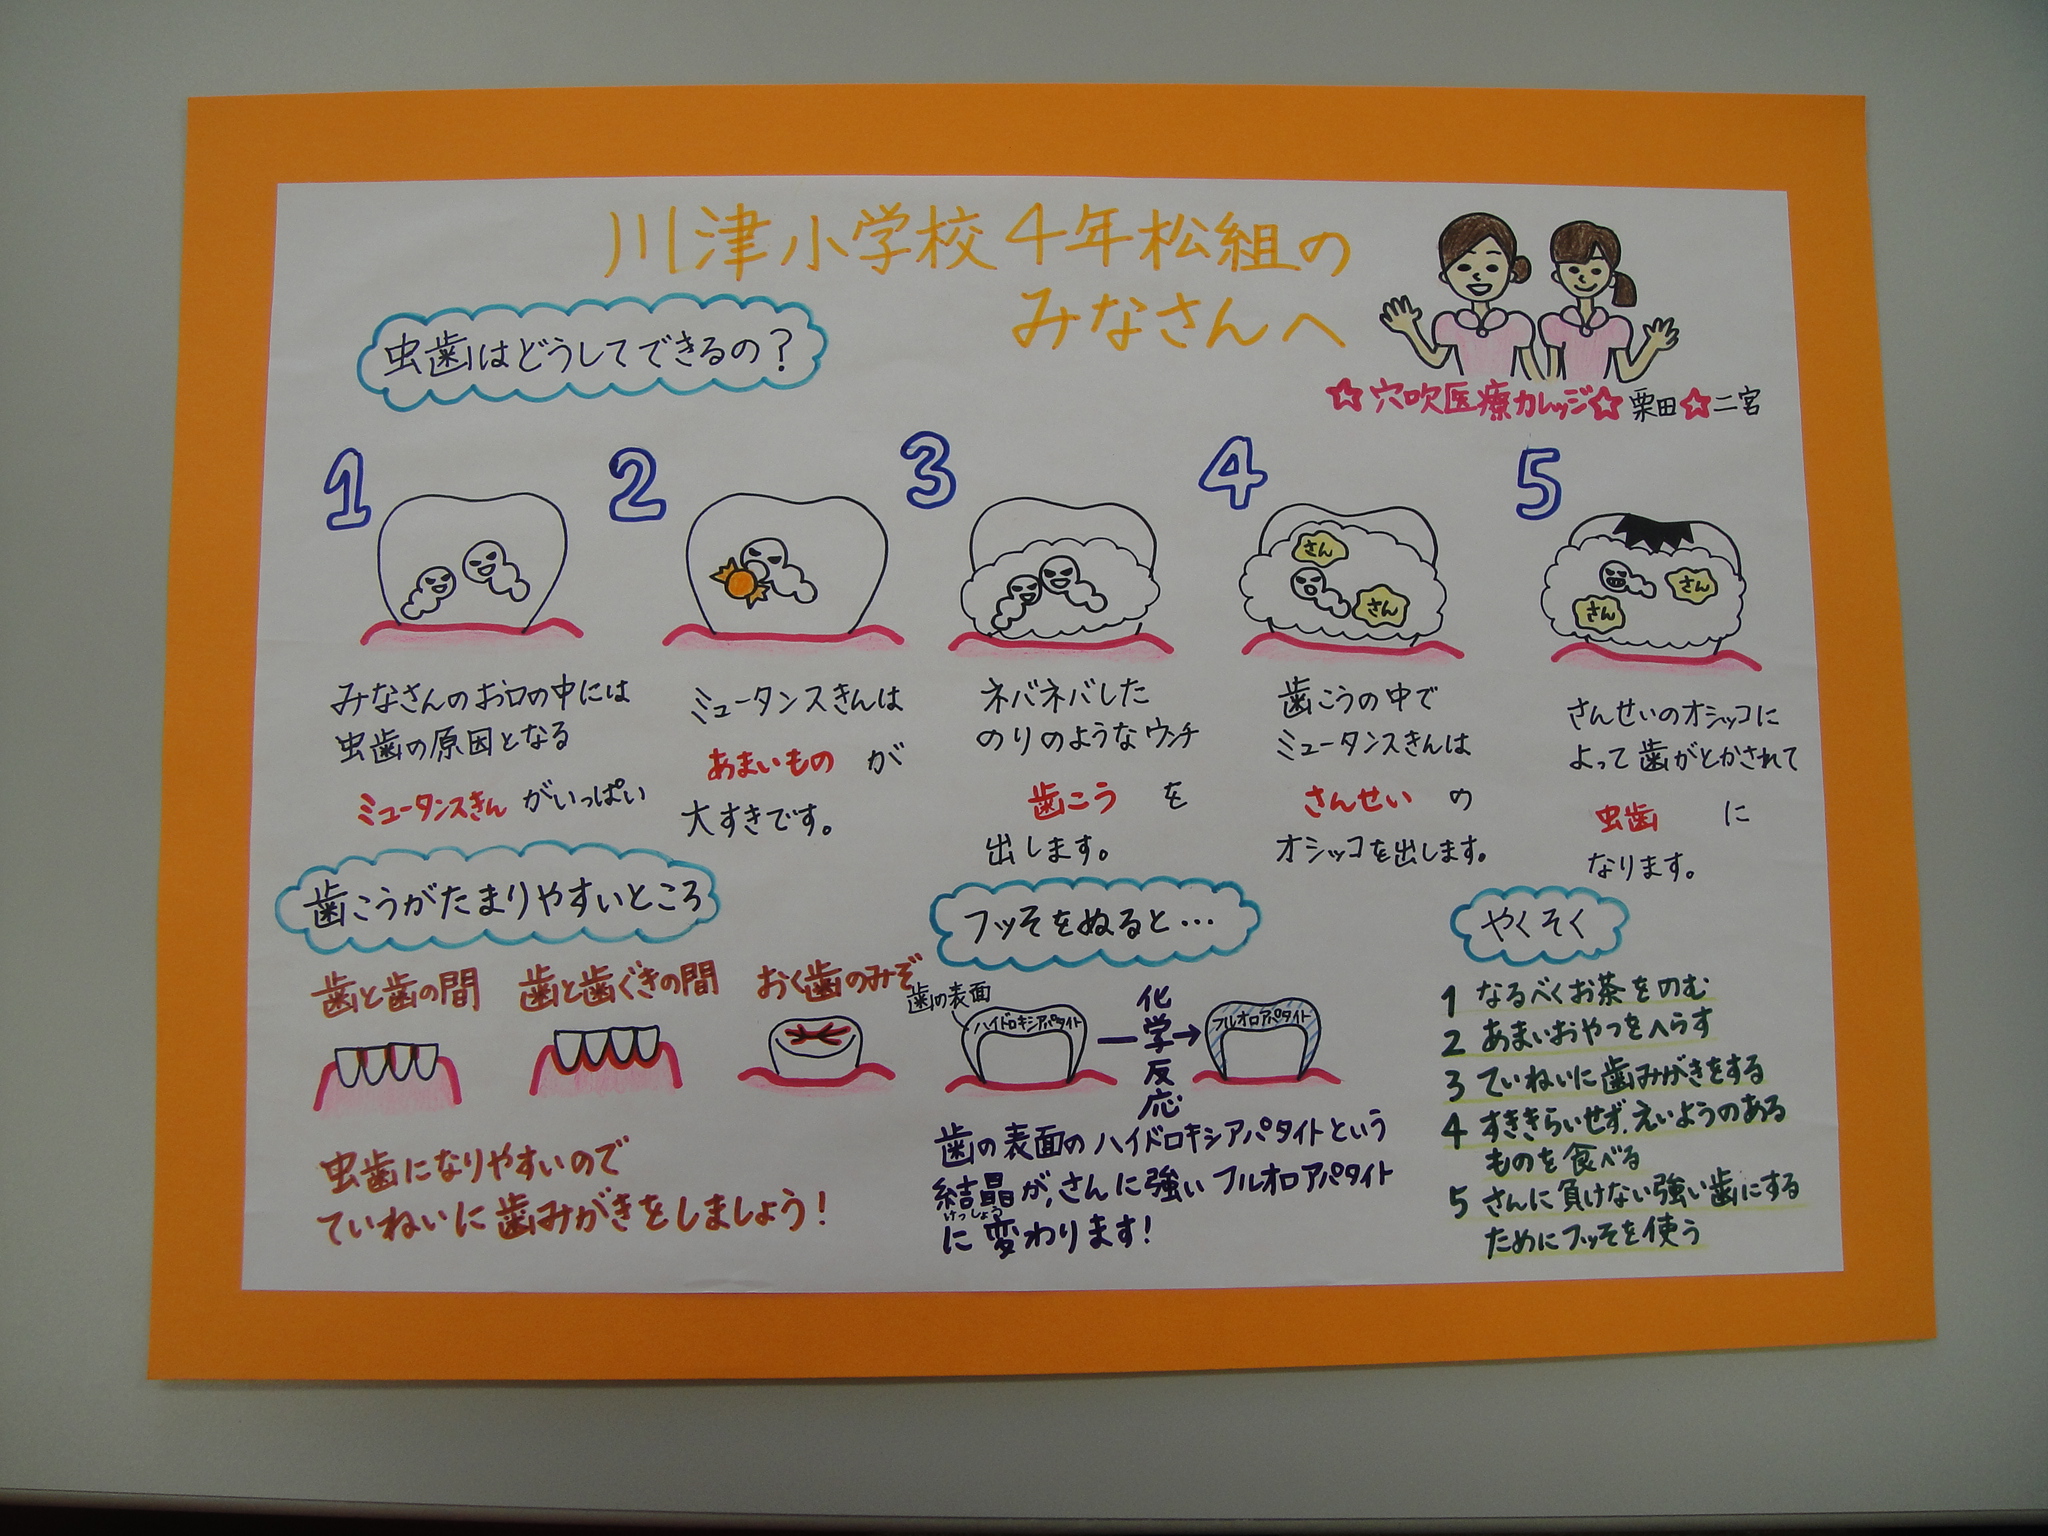 川津小学校4年松組の
みなさんへ
☆穴吹医療カレッジ☆栗田☆二宮
虫歯はどうしてできるの?
1
みなさんのお口の中には
虫歯の原因となる
ミュータンスきん がいっぱい
2
ミュータンスきんは
あまいもの が
大すきです。
3
ネバネバした
のりのようなウンチ
歯こう を
出します。
4
さん
さん
歯こうの中で
ミュータンスきんは
さんせい の
オシッコを出します。
5
さん
さん
さんせいのオシッコに
よって歯がとかされて
虫歯 に
なります。
歯こうがたまりやすいところ
歯と歯の間
歯と歯ぐきの間
おく歯のみぞ
虫歯になりやすいので
ていねいに歯みがきをしましょう!
フッそをぬると…
歯の表面
ハイドロキシアパタイト
化学反応
フルオロアパタイト
歯の表面のハイドロキシアパタイトという
結晶が、さんに強いフルオロアパタイト
けっしょう
に変わります!
やくそく
1 なるべくお茶をのむ
2 あまいおやつをへらす
3 ていねいに歯みがきをする
4 すききらいせず、えいようのある
ものを食べる
5 さんに負けない強い歯にする
ためにフッそを使う